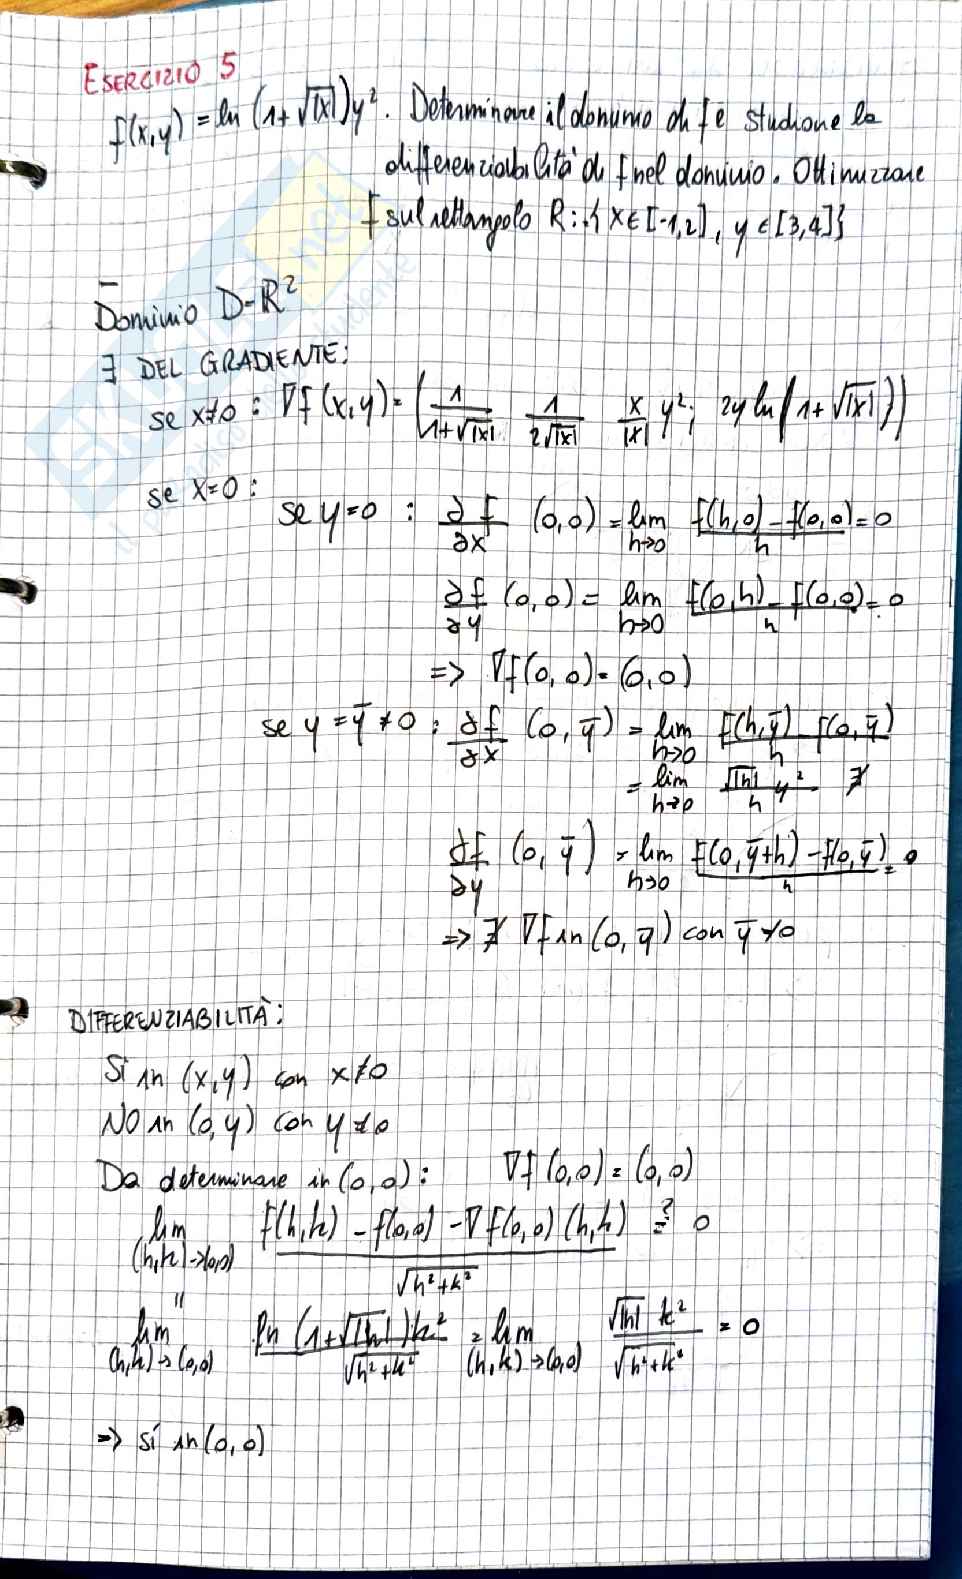 ESERCIZIO 5
f(x,y) = ln (1+√|x|)y². Determinare il dominio di f e studiare la
differenziabilità di f nel dominio. Ottimizzare
f sul rettangolo R:{ x∈[-1,2], y∈[3,4]}
Dominio D=R²
∃ DEL GRADIENTE:
se x≠0 : ∇f(x,y) = (1/(1+√|x|) 1/(2√|x|) x/|x| y²; 2y ln(1+√|x|))
se x=0 :
se y=0 : ∂f/∂x (0,0) = lim h→0 (f(h,0) - f(0,0))/h = 0
∂f/∂y (0,0) = lim h→0 (f(0,h) - f(0,0))/h = 0
=> ∇f(0,0) = (0,0)
se y = ȳ ≠ 0 : ∂f/∂x (0,ȳ) = lim h→0 (f(h,ȳ) - f(0,ȳ))/h
= lim h→0 √|h|/h y² ∄
∂f/∂y (0,ȳ) = lim h→0 (f(0,ȳ+h) - f(0,ȳ))/h = 0
=> ∄ ∇f in (0,ȳ) con ȳ≠0
DIFFERENZIABILITÀ:
Sì in (x,y) con x≠0
NO in (0,y) con y≠0
Da determinare in (0,0): ∇f(0,0) = (0,0)
lim (h,k)→(0,0) (f(h,k) - f(0,0) - ∇f(0,0)(h,k))/√(h²+k²) =? 0
"
lim (h,k)→(0,0) ln(1+√|h|)k²/√(h²+k²) = lim (h,k)→(0,0) √|h| k²/√(h²+k²) = 0
=> sì in (0,0)